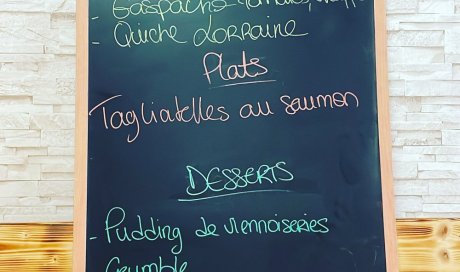 - Gaspacho tomates,
- Quiche Lorraine
Plats
Tagliatelles au saumon
DESSERTS
- Pudding de viennoiseries
Crumble